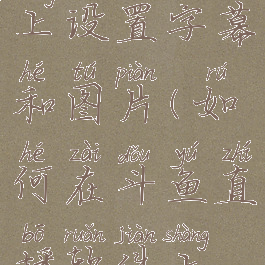 上设置字幕
hé tú piàn rú
和图片(如
hé zài dòu yú zhí
何在斗鱼直
bō ruǎn jiàn shàng
播软件上